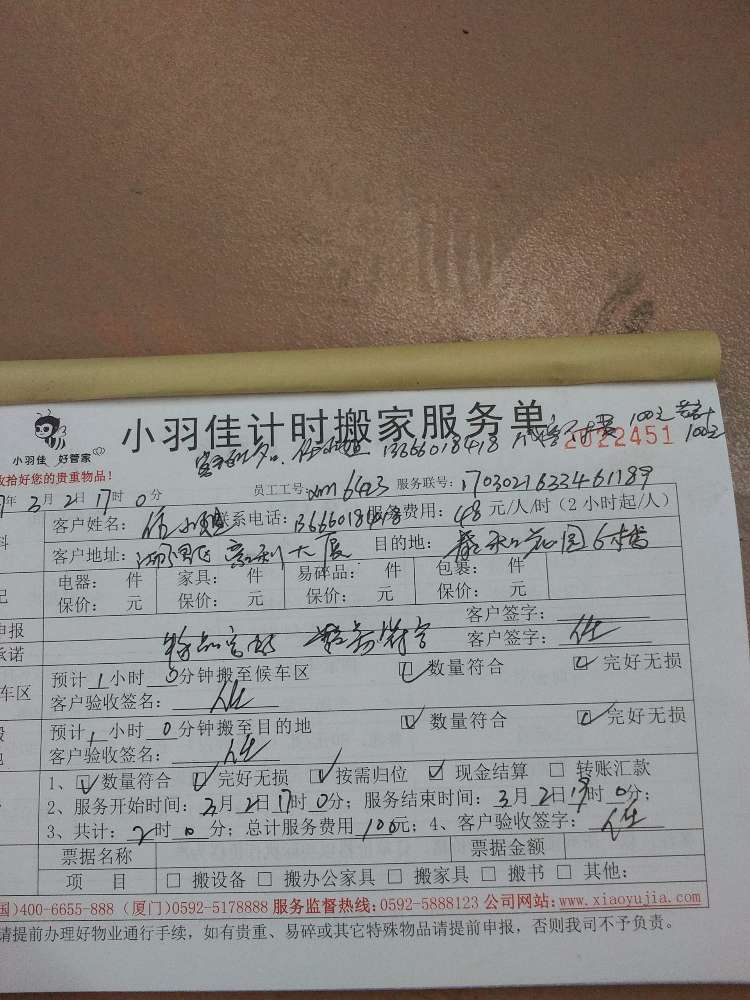 小羽佳计时搬家服务单
小羽佳 好管家
13366018418 100元
100元
2022451
收拾好您的贵重物品!
年3月2日17时0分 员工工号:xm6423 服务联号:1703021633461189
客户姓名:任 联系电话: 服务费用:48元/人/时(2小时起/人)
客户地址: 大厦 目的地: 花园6栋
电器: 件 家具: 件 易碎品: 件 包裹: 件
保价: 元 保价: 元 保价: 元 保价: 元
申报 客户签字:
承诺 客户签字:任
车区 预计1小时0分钟搬至候车区 数量符合 完好无损
客户验收签名:任
预计1小时0分钟搬至目的地 数量符合 完好无损
客户验收签名:任
1、数量符合 完好无损 按需归位 现金结算 转账汇款
2、服务开始时间:3月2日17时0分;服务结束时间:3月2日19时0分;
3、共计:2时0分;总计服务费用100元;4、客户验收签字:任
票据名称 票据金额
项 目 搬设备 搬办公家具 搬家具 搬书 其他:
国)400-6655-888(厦门)0592-5178888 服务监督热线:0592-5888123 公司网站:www.xiaoyujia.com
请提前办理好物业通行手续,如有贵重、易碎或其它特殊物品请提前申报,否则我司不予负责。